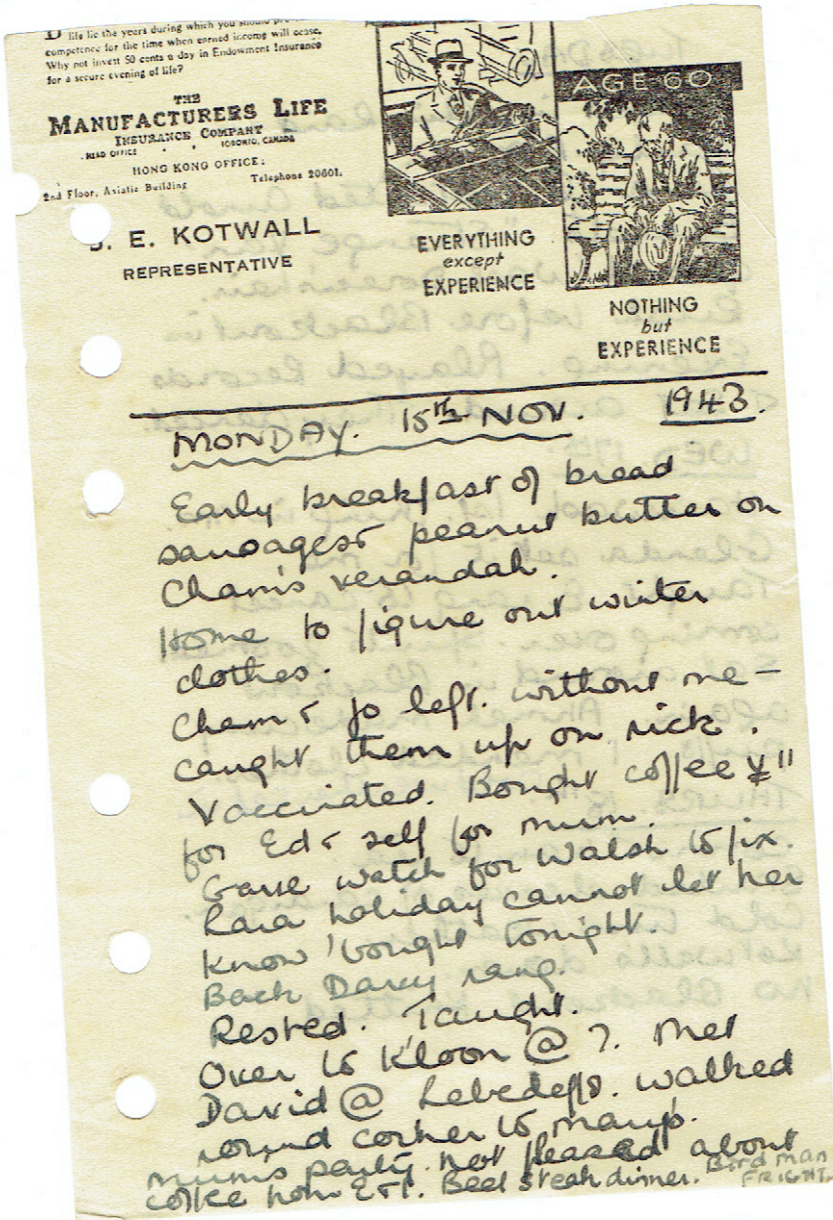 life lie the years during which you should
competence for the time when earned income will cease.
Why not invest 50 cents a day in Endowment Insurance
for a secure evening of life?
THE
MANUFACTURERS LIFE
INSURANCE COMPANY
HEAD OFFICE TORONTO, CANADA
HONG KONG OFFICE:
2nd Floor, Asiatic Building Telephone 20601.
E. KOTWALL
REPRESENTATIVE
EVERYTHING
except
EXPERIENCE
AGE-60
NOTHING
but
EXPERIENCE
MONDAY. 15th NOV. 1943.
Early breakfast of bread
sausages & peanut butter on
Cham's verandah.
Home to figure out winter
clothes.
Cham & Jo left. without me –
caught them up on rick.
Vaccinated. Bought coffee ¥11
for Ed & self for mum.
Gave watch for Walsh to fix.
Raia holiday cannot let her
know 'bought' tonight.
Back Darcy rang.
Rested. Taught.
Over to Kloon @ 7. Met
David @ Lebedeffs. walked
round corner to
Mums party. not pleased about
coffee from E & I. Beef steak dinner. Bird man
FRIGHT.